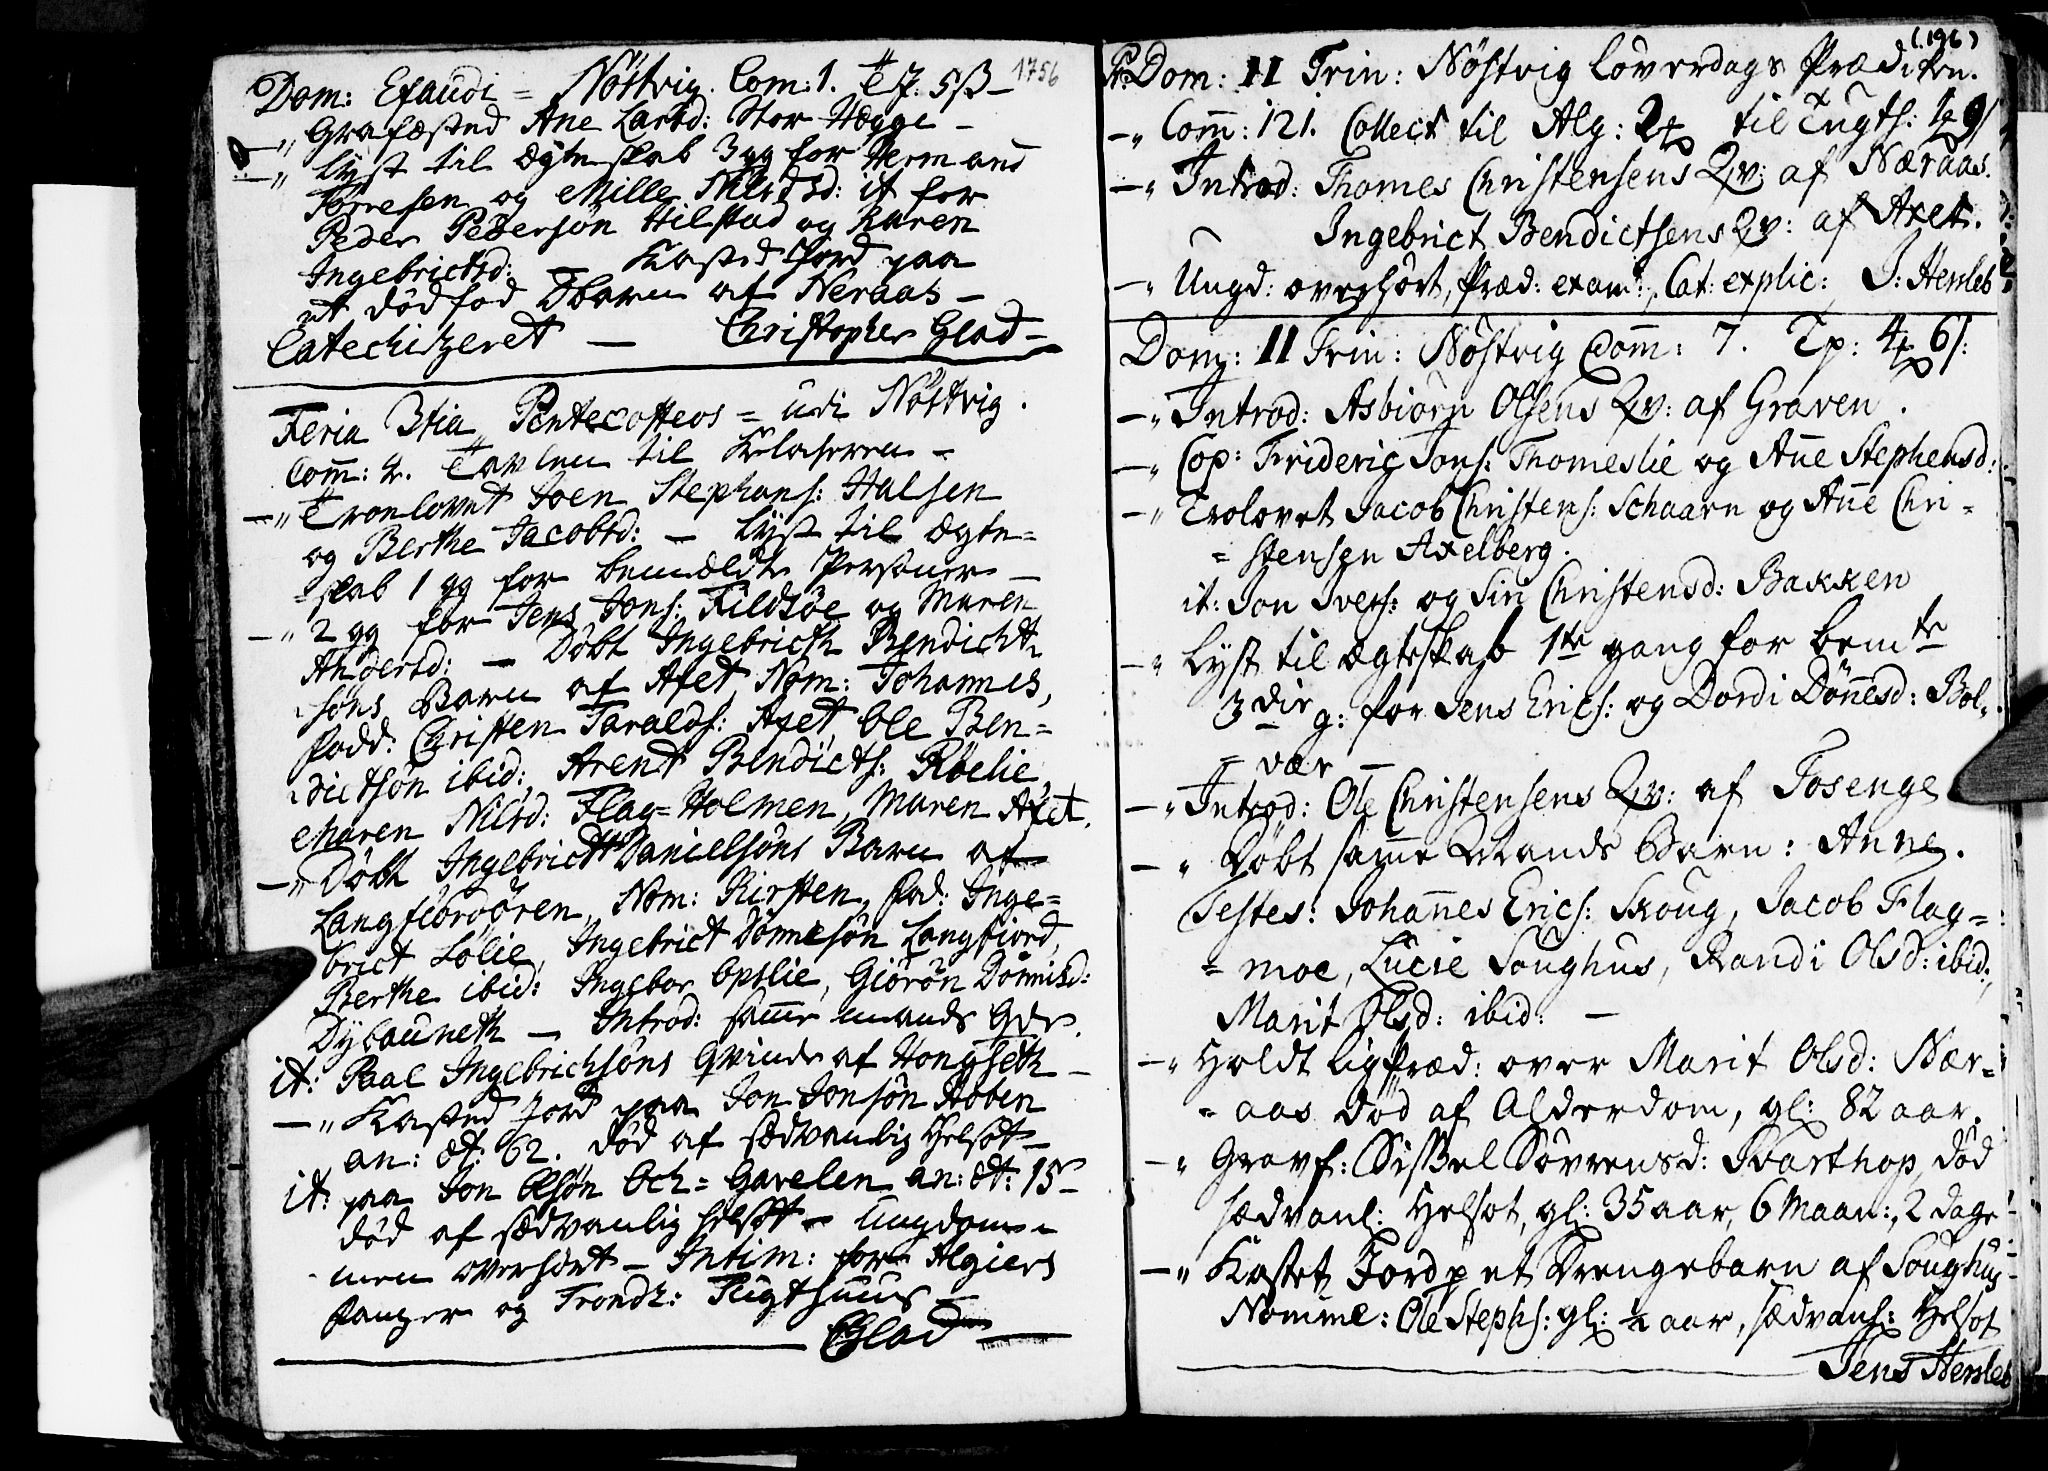 1756
Dom: Exaudi = Nöstvig. Com: 1. T 7. 5ß –
–„ Grafæsted Ane Larsd: Stor Hegge –
–„ lyst til Ægteskab 3 gg for Hermand
Torresen og Mille Nilsd: it for
Peder Pedersön Hilstad og Karen
Ingebrictsd: – Kasted Jord paa
et dödfod Dbarn af Neraas –
Catechizeret – Christopher Glad –
Feria 3tia Pentecostes = udi Nöstvig.
Com: 4. Tavlen til Kloscheren –
–„ Troelovet Joen Stephans: Halsen
og Berthe Jacobsd: – lyst til Ægte=
=skab 1 gg for bemældte Personer –
–„ 2 gg for Jens Jons: Fildsöe og Maren
Andersd: – Döbt Ingebricth Bendicht
söns Barn af Axet Nom: Johannes,
fadd: Christen Faralds: Axet, Ole Ben=
dictsön ibid:, Arent Bendicts: Röelie,
Maren Nilsd: Flag=Holmen, Maren Axet.
–„ Döbt Ingebrict Danielsöns Barn af
Langfiordören, Nom: Kirsten, fad: Inge=
brict Lölie, Ingebrict Dönnesön Langfiord,
Berthe ibid: Ingebor Opslie, Giörön Dönnisd:
Dybauneth – Introd: samme mands Qv.
it: Paal Ingebrichsöns Qvinde af Hongseth –
–„ Kasted Jord paa Jon Jonsön Roben
an: æt: 62. död af sædvanlig Helsot –
it: paa Jon Olsön Och= Gavelen an: æt: 15 –
död af sædvanlig Helsot – Ungdom=
men overhört – Intim: for Algiers
fanger og Trondh: Tugthuus –
Glad
(196)
Pr: Dom: 11 Trin: Nöstvig Löverdags Prædiken.
–„ Com̄: 121. Collect til Alg: 2 til Tugts: 1
–„ Introd: Thomes Christensens Qv: af Næraas.
Ingebrict Bendictsens Qv: af Axet.
–„ Ungd: overhört, Præd: exam:, Cat: explic: J: Hersleb
Dom: 11 Trin: Nöstvig Com̄: 7. Tp: 4 6ſ:
–„ Introd: Asbiörn Olsens Qv: af Graven.
–„ Cop: Friderig Jons: Thomeslie og An̄e Stephensd:
–„ Trolovet Jacob Christens: Schaarn og An̄e Chri=
=stensen Axelberg.
it: Jon Ivers: og Siri Christensd: Bakken
–„ Lyst til Ægteskab 1te gang for bemte
3die g: for Jens Erics: og Dordi Dön̄esd: Bol=
=vær –
–„ Introd: Ole Christensens Qv: af Fosenge
–„ Döbt sam̄e Mands Barn: Anne.
Testes: Johan̄es Erics: Skoug, Jacob Flag=
=moe, Lucie Soughus, Randi Olsd: ibid:,
Marit Olsd: ibid: –
–„ Holdt ligPræd: over Marit Olsd: Nær=
=aas död af Alderdom, gl: 82 aar.
–„ Gravf: Sissel Sövrensd: Svarthop, död
sædvanl: Helsot, gl: 35 aar, 6 Maan:, 2 dage
–„ Kastet Jord p et Drengebarn af Soughus
Nomine: Ole Stephs: gl: ½ aar, sædvanl: Helsot
Jens Hersleb